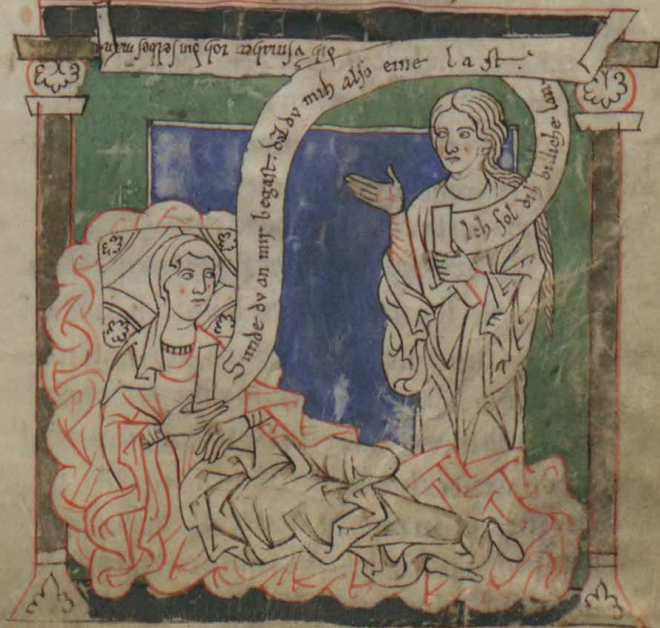 Sunde dv an mir begast. daz dv mih also eine last.
Ich sol dih billiche lan
dih vsmahet ioh din selbes man